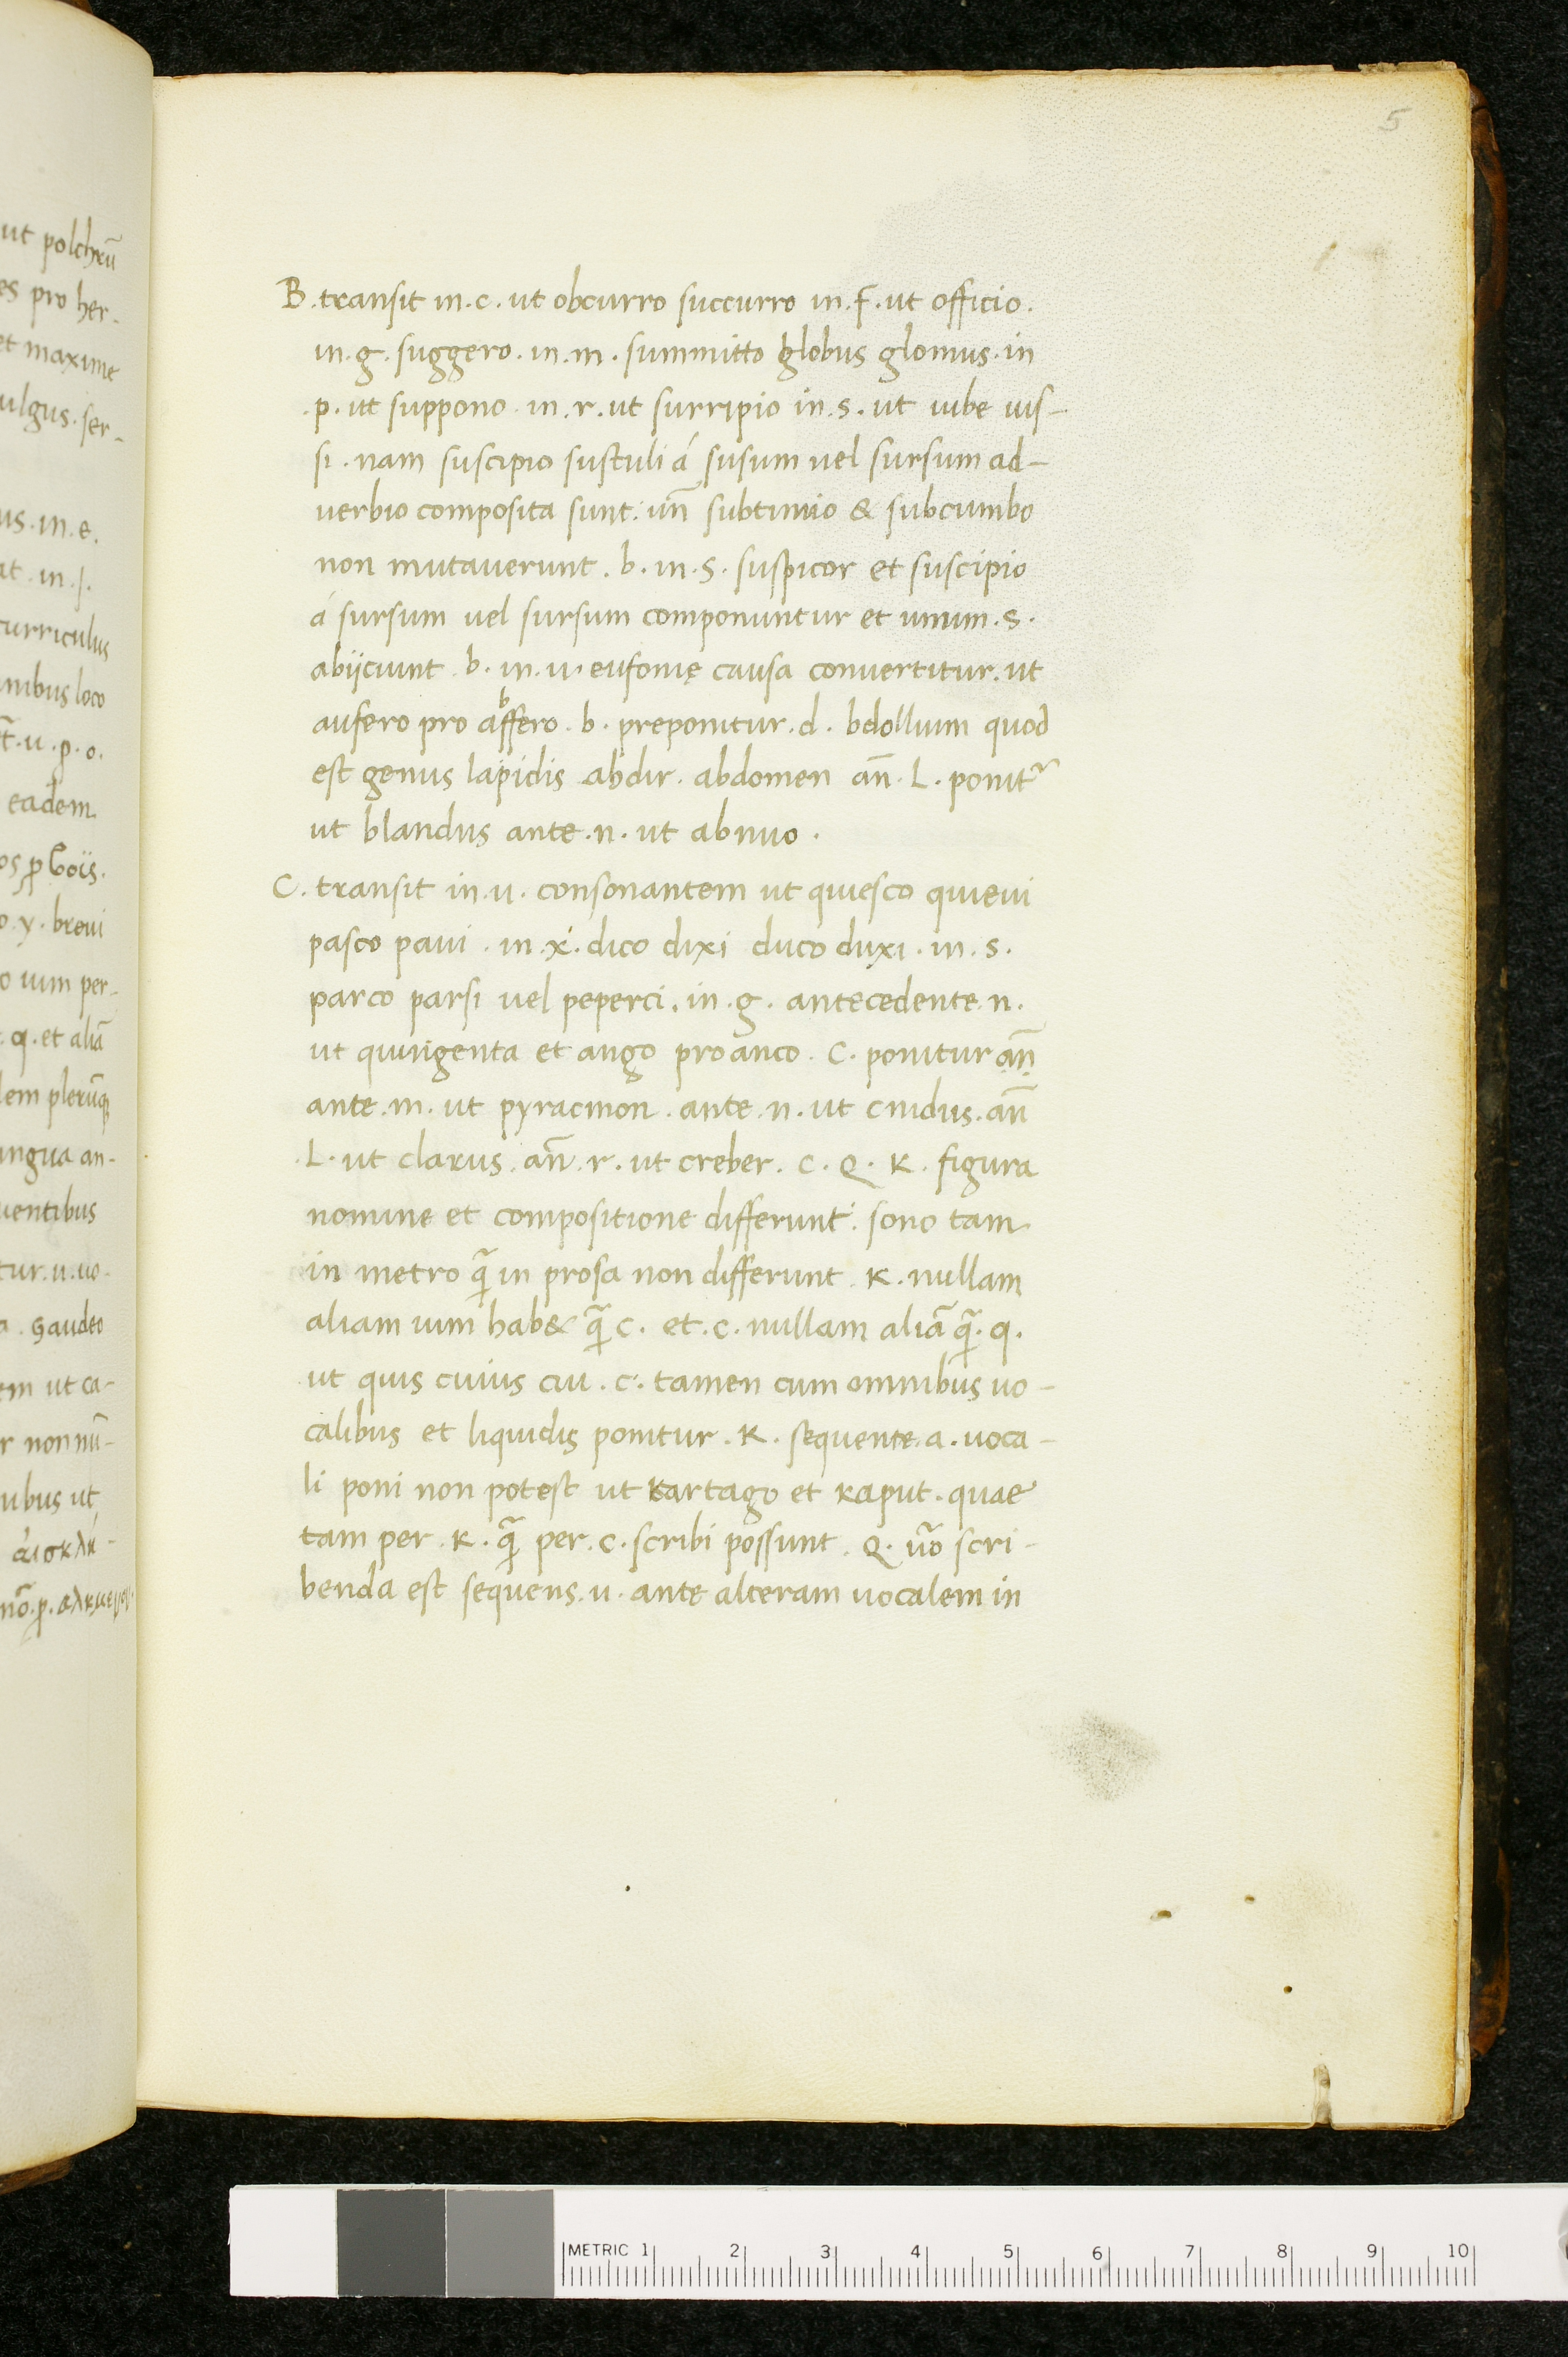 5
B. transit in. c. ut obcurro succurro in. F. ut officio.
in. g. suggero. in. m. summitto globus glomus. in
.p. ut suppono. in. r. ut surripio in. s. ut iube ius-
si. nam suscipio sustuli á susum vel sursum ad-
uerbio composita sunt. un̄ subtimio & subcumbo
non mutauerunt. b. in. s. suspicor et suscipio
á sursum vel sursum componuntur et unum. s.
abijciunt. b. in. u. eufonię causa conuertitur. ut
aufero pro abffero. b. preponitur. d. bdollium quod
est genus lapidis abdir. abdomen an̄. L. ponit᷑
ut blandus ante. n. ut abnuo.
C. transit in. u. consonantem ut quiesco quieui
pasco paui. in. x. dico dixi duco duxi. in. s.
parco parsi uel peperci. in. g. antecedente. n.
ut quingenta et ango pro anco. C. ponitur an̄
ante. m. ut pyracmon. ante. n. ut cnidus. an̄
.L. ut clarus. an̄. r. ut creber. C. Q. K. figura
nomine et compositione differunt. sono tam
in metro q̄ in prosa non differunt. K. nullam
aliam uim hab& q̄ c. et. c. nullam aliā q̄. q.
ut quis cuius cui. c. tamen cum omnibus uo-
calibus et liquidis ponitur. K. sequente. a. uoca-
li poni non potest ut kartago et kaput. quae
tam per. K. q̄ per. c. scribi possunt. Q. u̅o scri-
benda est sequens. u. ante alteram uocalem in
ut polchrū
es pro her-
et maxime
ulgus. ser-
us. in. e.
at. in. I.
curriculus
nibus loco
.u. p. o.
eadem
o. y. breui
o uim per-
q. et aliā
lem plerūq
ingua an-
uentibus
tur. u. uo-
a. Gaudeo
em ut ca-
r non nū-
ubus ut
METRIC 1 2 3 4 5 6 7 8 9 10